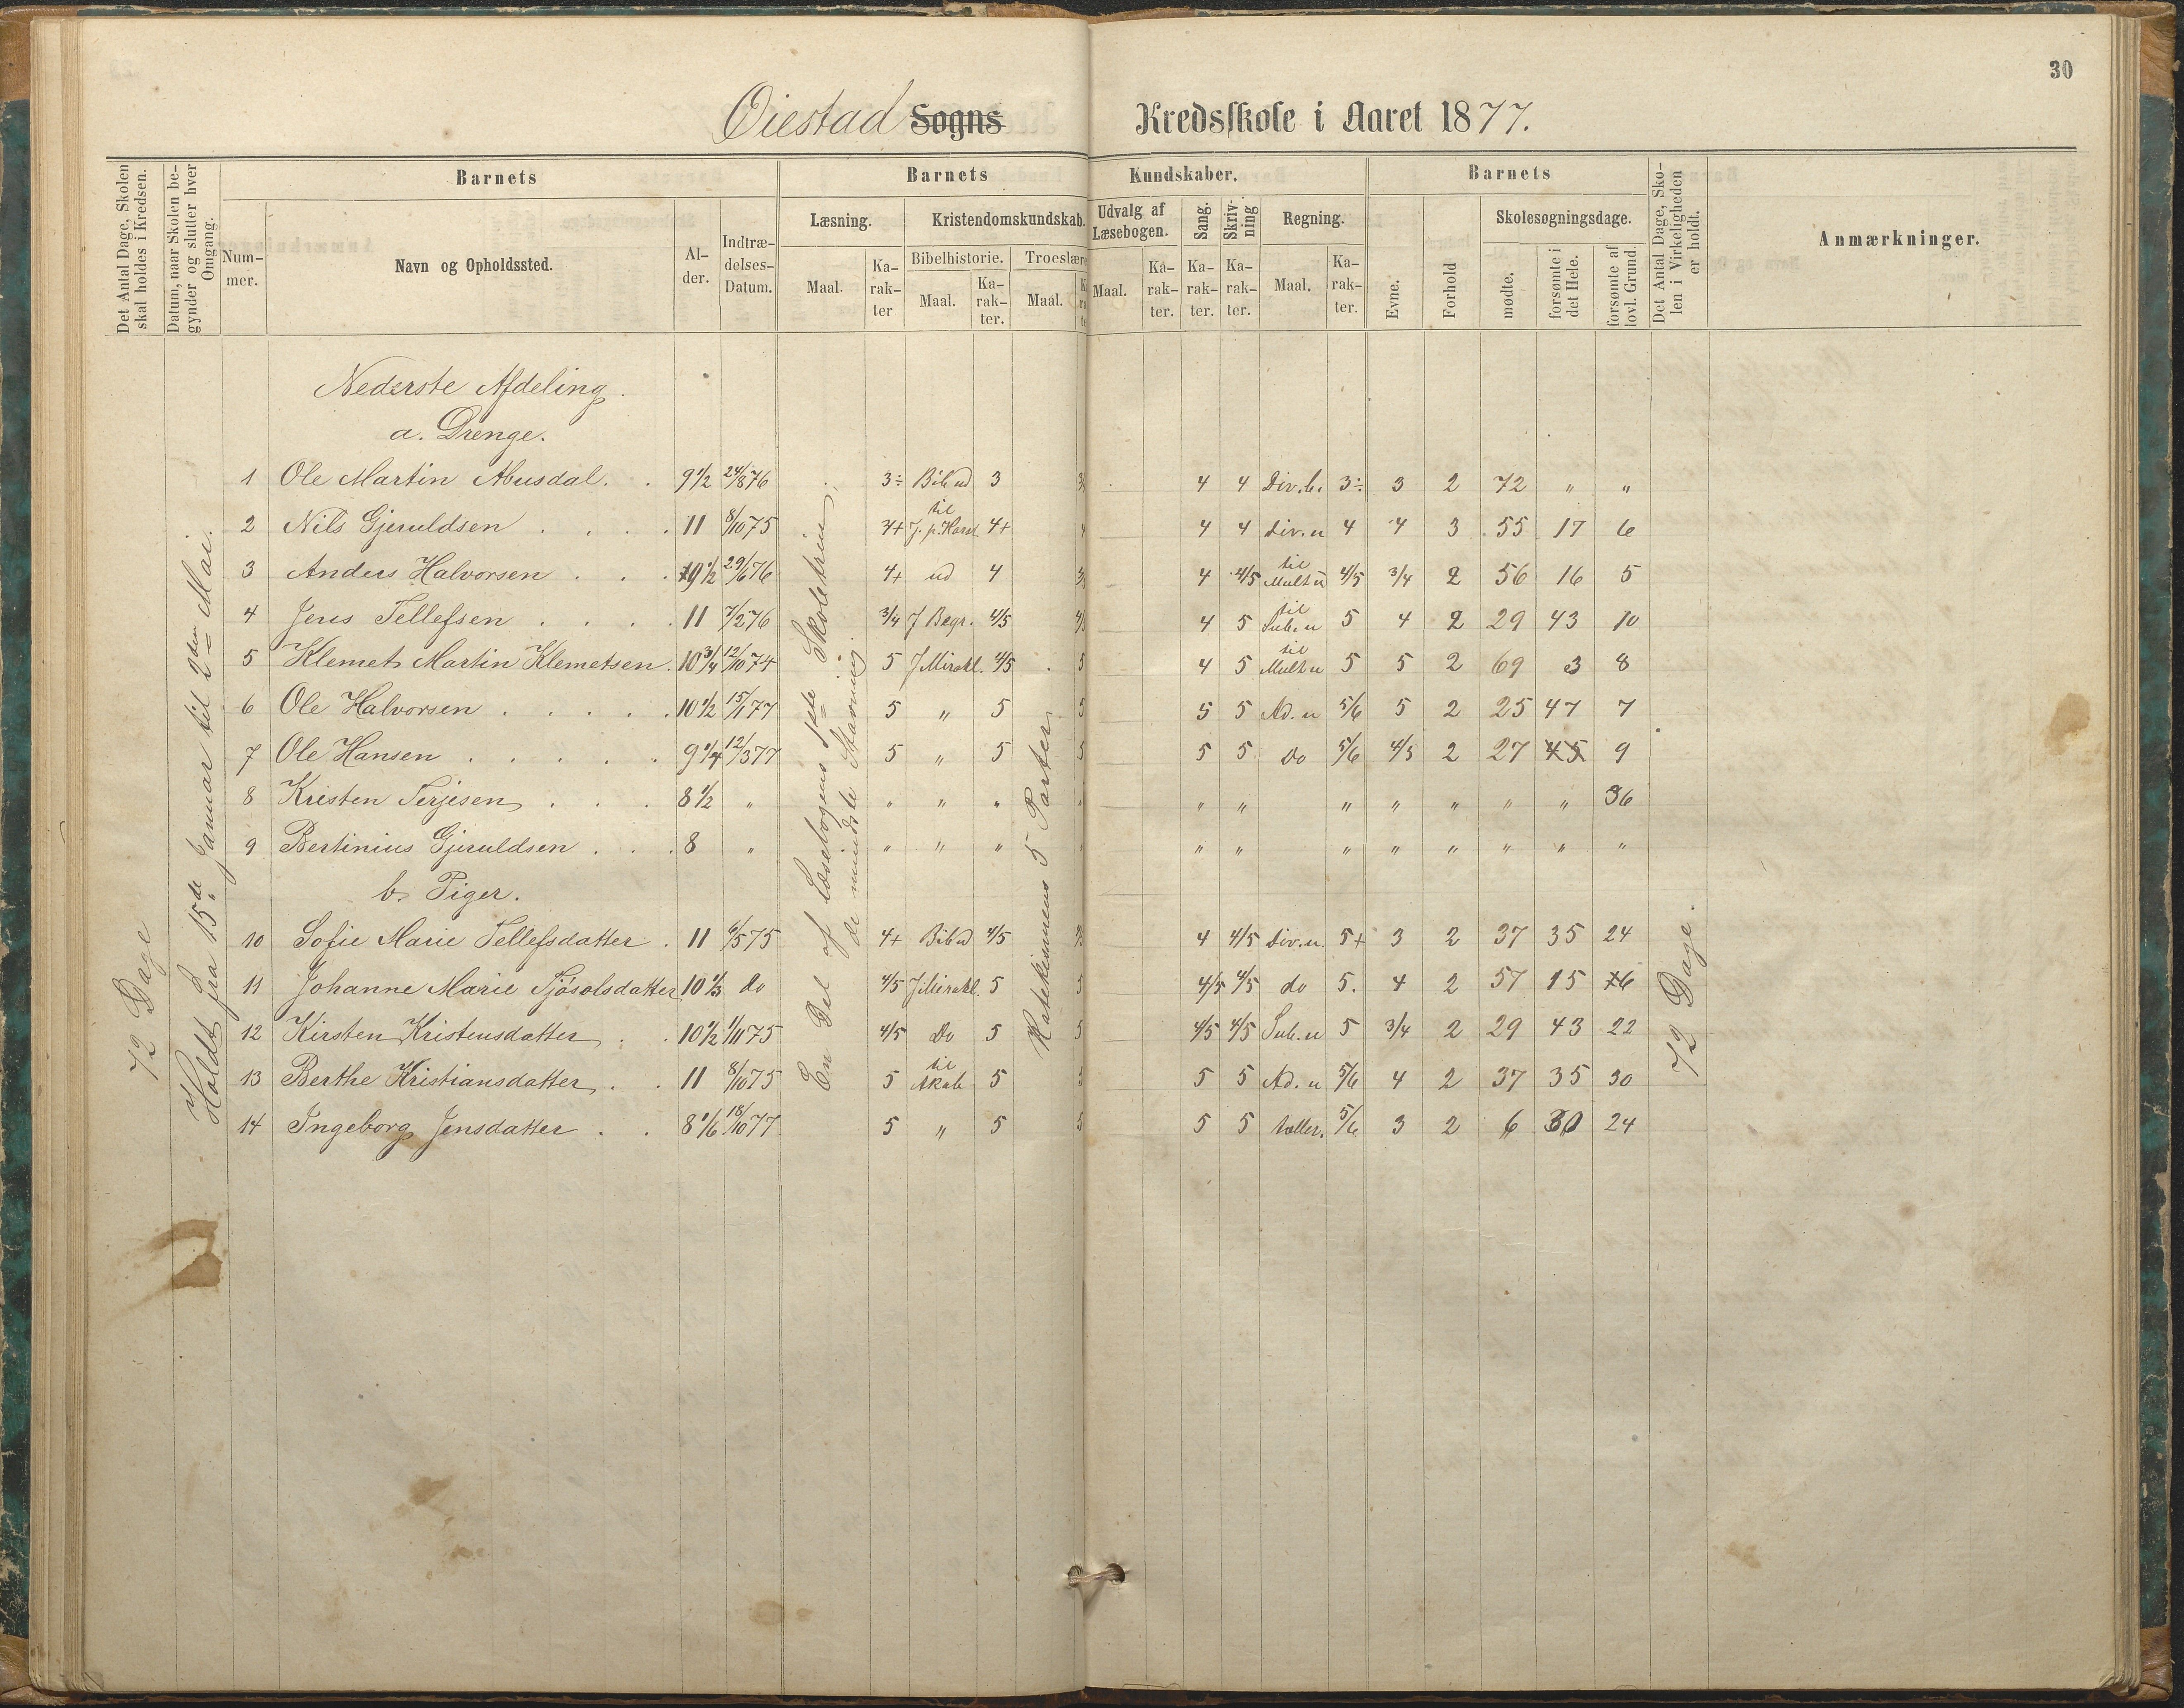 30
Øiestad Sogns Kredsskole i Aaret 1877.
Det Antal Dage, Skolen skal holdes i Kredsen.
Datum, naar Skolen begynder og slutter hver Omgang.
Barnets
Nummer.
Navn og Opholdssted.
Alder.
Indtrædelses-Datum.
Barnets Kundskaber.
Læsning.
Maal.
Karakter
Kristendomskundskab.
Bibelhistorie.
Maal.
Karakter.
Troeslære
Maal.
Udvalg af Læsebogen.
Maal.
Karakter.
Sang.
Karakter.
Skrivning
Karakter.
Regning.
Maal.
Karakter.
Barnets
Evne.
Forhold
Skolesøgningsdage.
mødte.
forsømte i det Hele.
forsømte af lovl. Grund.
Det Antal Dage, Skolen i Virkeligheden er holdt.
Anmærkninger.
72 Dage
Holdt fra 15de Januar til 2den Mai.
En Del af Læsebogens 1ste Skoletrin,
de mindste Stavning.
Katekismens 5 Parter
72 Dage.
Nederste Afdeling.
a. Drenge.
1 Ole Martin Abusdal. . 9 1/2 24/8 76 3÷ Bib ud 3 4 4 Div. b. 3÷ 3 2 72 " "
2 Nils Gjeruldsen . . . . 11 8/10 75 4+ til J. p. Kors 4+ 4 4 4 Div. u 4 4 3 55 17 6
3 Anders Halvorsen . . . 9 1/2 29/6 76 4+ ud 4 4 4/5 til Mult u 4/5 3/4 2 56 16 5
4 Jens Tellefsen . . . . 11 7/2 76 3/4 J Begr. 4/5 4 5 til Sub. u 5 4 2 29 43 10
5 Klemet Martin Klemetsen . 10 3/4 12/10 74 5 J Mirakl. 4/5 5 4 5 til Mult u 5 5 2 69 3 8
6 Ole Halvorsen . . . . . 10 1/2 15/1 77 5 " 5 5 5 5 Ad. u 5/6 5 2 25 47 7
7 Ole Hansen . . . . . 9 1/4 12/3 77 5 " 5 5 5 5 Do 5/6 4/5 2 27 45 9
8 Kristen Terjesen . . . 8 1/2 " " " " " " " " " " " 36
9 Bertinius Gjeruldsen . . . 8 " " " " " " " " " " " "
b. Piger.
10 Sofie Marie Tellefsdatter . 11 6/5 75 4+ Bib ud 4/5 4 4/5 Div. u. 5+ 3 2 37 35 24
11 Johanne Marie Tjøsolsdatter 10 1/3 do 4/5 J Mirakl. 5 5 4/5 4/5 do 5. 4 2 57 15 6
12 Kirsten Kristensdatter . . 10 1/2 1/11 75 4/5 Do 5 5 4/5 4/5 Sub. u 5 3/4 2 29 43 22
13 Berthe Kristiansdatter . . 11 8/10 75 5 til Skab 5 5 5 5 Ad. u 5/6 4 2 37 35 30
14 Ingeborg Jensdatter . . 8 1/6 18/10 77 5 " 5 5 5 5 tæller. 5/6 3 2 6 30 24